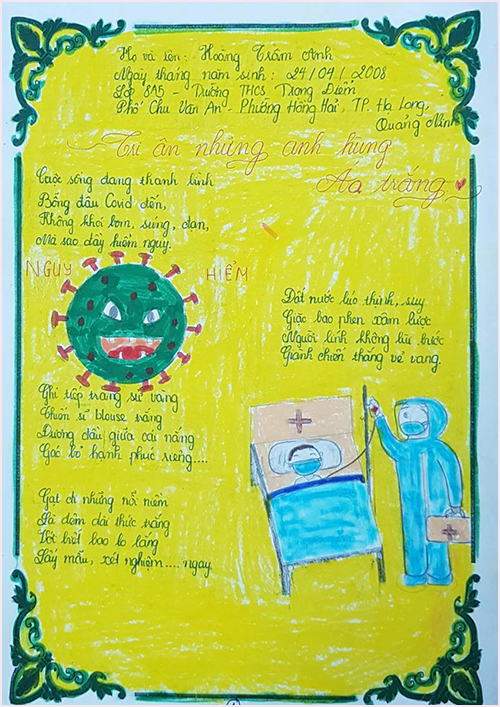 Họ và tên: Hoàng Trâm Anh
Ngày tháng năm sinh: 24/04/2008
Lớp 8A5 - Trường THCS Trọng Điểm
Phố Chu Văn An - Phường Hồng Hải, TP. Hạ Long,
Quảng Ninh
Tri ân những anh hùng
Áo trắng
Cuộc sống đang thanh bình
Bỗng đâu Covid đến,
Không khói bom, súng, đạn,
Mà sao đầy hiểm nguy.
NGUY HIỂM
Đất nước lúc thịnh, suy
Giặc bao phen xâm lược
Người lính không lùi bước
Giành chiến thắng vẻ vang.
Ghi tiếp trang sử vàng
Chiến sĩ blouse trắng
Đương đầu giữa cái nắng
Gác bỏ hạnh phúc riêng....
Gạt đi những nỗi niềm
Là đêm dài thức trắng
Với biết bao lo lắng
Lấy mẫu, xét nghiệm....ngay